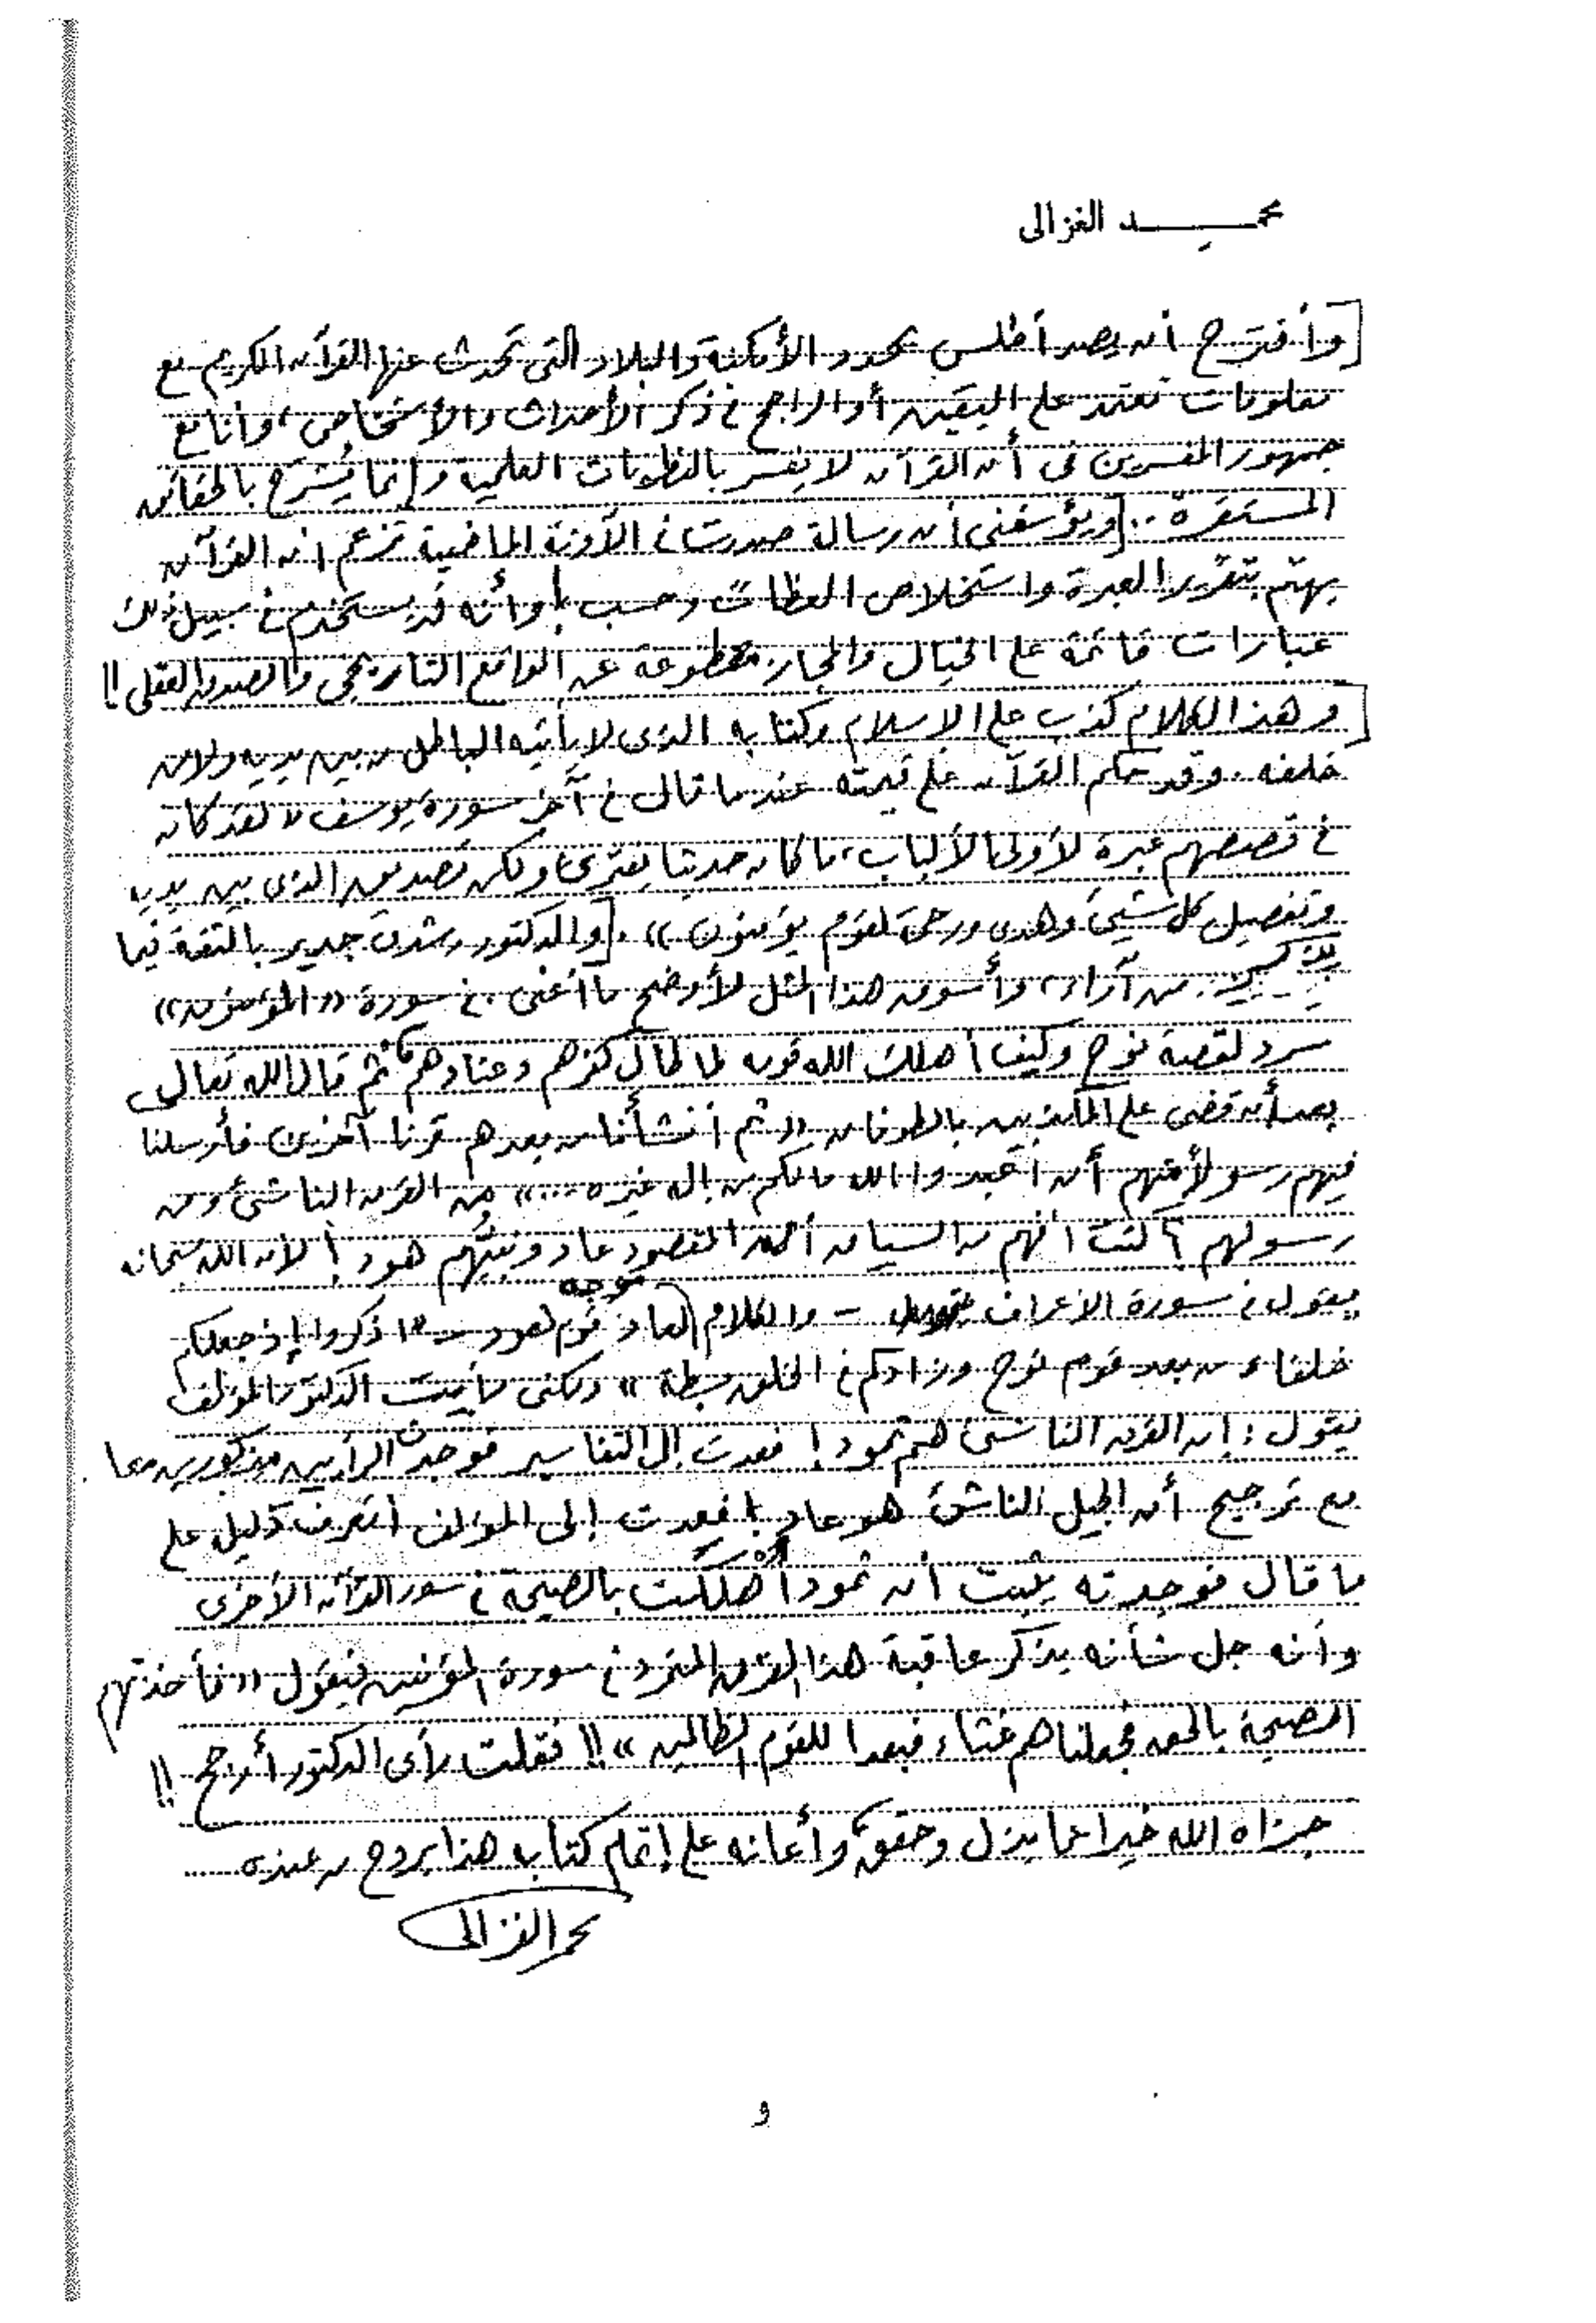 محمد الغزالى
[وأقترح أن يصدر أطلس يحدد الأمكنة والبلاد التى تحدث عنها القرآن الكريم مع
معلومات تعتمد على اليقين أو الراجح فى ذكر الأحداث والأشخاص، وأنا مع
جمهور المفسرين فى أن القرآن لا يفسر بالنظريات العلمية وإنما يُشرح بالحقائق
المستقرة .. [ويؤسفنى أن رسالة صدرت فى الآونة الماضية تزعم أن القرآن
يهتم بتقرير العبرة واستخلاص العظات وحسب! وأنه قد يستخدم فى سبيل ذلك
عبارات قائمة على الخيال والمجاز مقطوعة عن الواقع التاريخى والصدق العقلى!!
[وهذا الكلام كذب على الإسلام وكتابه الذى لا يأتيه الباطل من بين يديه ولا من
خلفه. وقد حكم القرآن على قيمته عندما قال فى آخر سورة يوسف "لقد كان
فى قصصهم عبرة لأولى الألباب، ما كان حديثا يفترى ولكن تصديق الذى بين يديه
وتفصيل كل شيئ وهدى ورحمة لقوم يؤمنون". [والدكتور رشدى جدير بالثقة فيما
من آراء، وأسوق هذا المثل لأوضح ما أعنى. فى سورة "المؤمنون"
سرد لقصة نوح وكيف أهلك الله قومه لما طال كفرهم وعنادهم، ثم قال الله تعالى
بعد أن قضى على المكذبين بالطوفان "ثم أنشأنا من بعدهم قرنا آخرين فأرسلنا
فيهم رسولا منهم أن اعبدوا الله مالكم من إله غيره ..." من القرن الناشئ ومن
رسولهم؟ كنت أفهم من السياق أن المقصود عاد ونبيّهم هود! لأن الله سبحانه
يقول فى سورة الأعراف - والكلام موجه لعاد قوم هود - "اذكروا إذ جعلكم
خلفاء من بعد قوم نوح وزادكم فى الخلق بسطة" ولكنى رأيت الدكتور المؤلف
يقول: إن القرن الناشئ هم ثمود! فعدت إلى التفاسير فوجدت الرأيين مذكورين معا
مع ترجيح أن الجيل الناشئ هو عاد! فعدت إلى المؤلف أتعرف دليله على
ما قال فوجدته يثبت أن ثمود أُهلكت بالصيحة فى سور القرآن الأخرى
وأنه جل شأنه يذكر عاقبة هذا القرن المتمرد فى سورة المؤمنين فيقول "فأخذتهم
الصيحة بالحق فجعلناهم غثاء، فبعدا للقوم الظالمين"!! فقلت رأى الدكتور أرجح!!
جزاه الله خيرا عما بذل وحقق، وأعانه على إتمام كتابه هذا بروح من عنده
محمد الغزالى
و